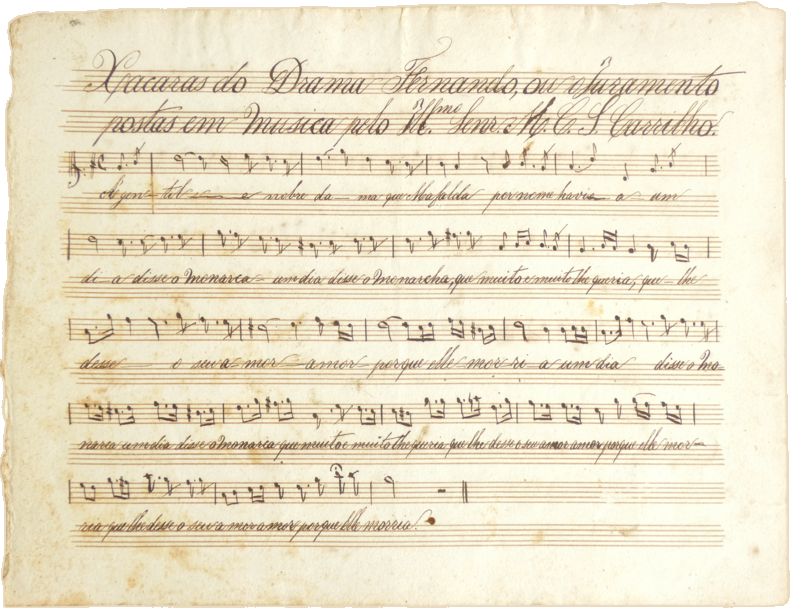 Xacaras do Drama Fernando, ou o Juramento
postas em Musica pelo Illmo. Senr. M. C. S. Carrilho.
A gen- til e nobre da- ma que Mafalda por nome havia a um
di- a disse o Monarca um dia disse o Monarcha, que muito e muito lhe queria, que- lhe
desse o seu a mor- amor- porque elle mor- ri a um dia disse o Mo-
narca um dia disse o Monarca que muito e muito lhe queria que lhe desse o seu amor amor porque elle mor-
ria que lhe desse o seu a mor amor porque elle morria.